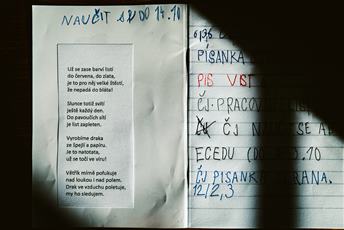 NAUČIT SE DO 14.10
Už se zase barví listí
do červena, do zlata,
je to pro něj velké štěstí,
že nepadá do bláta!
Slunce totiž svítí
ještě každý den.
Do pavoučích sítí
je list zapleten.
Vyrobíme draka
ze špejlí a papíru.
Je to natotata,
už se točí ve víru!
Větřík mírně pofukuje
nad loukou i nad polem.
Drak ve vzduchu poletuje,
my ho sledujem.
PÍSANKA
PIS
ČJ-PRACOVNÍ
ČJ
ECEDU (DO
.10
ČJ PÍSANKA
RANA.
12/2,3